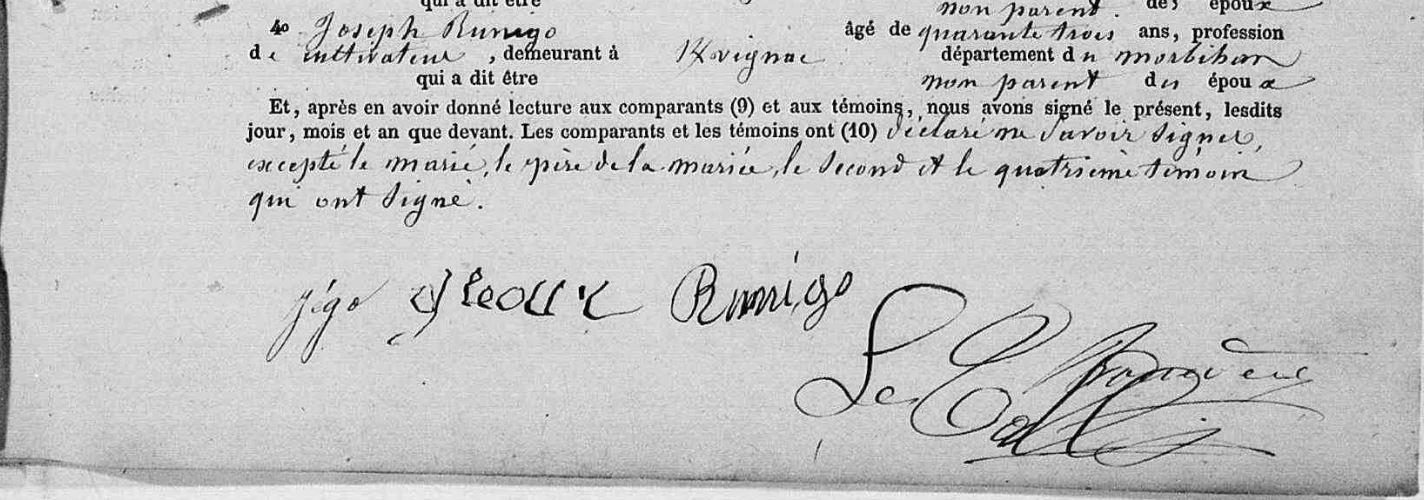 qui a dit être non parent. des époux
4o Joseph Runigo âgé de quarante trois ans, profession
de cultivateur, demeurant à département du morbihan
qui a dit être non parent des époux
Et, après en avoir donné lecture aux comparants (9) et aux témoins, nous avons signé le présent, lesdits
jour, mois et an que devant. Les comparants et les témoins ont (10) déclaré ne savoir signer,
excepté le marié, le père de la mariée, le second et le quatrième témoin
qui ont signé.
jégo Runigo
Le